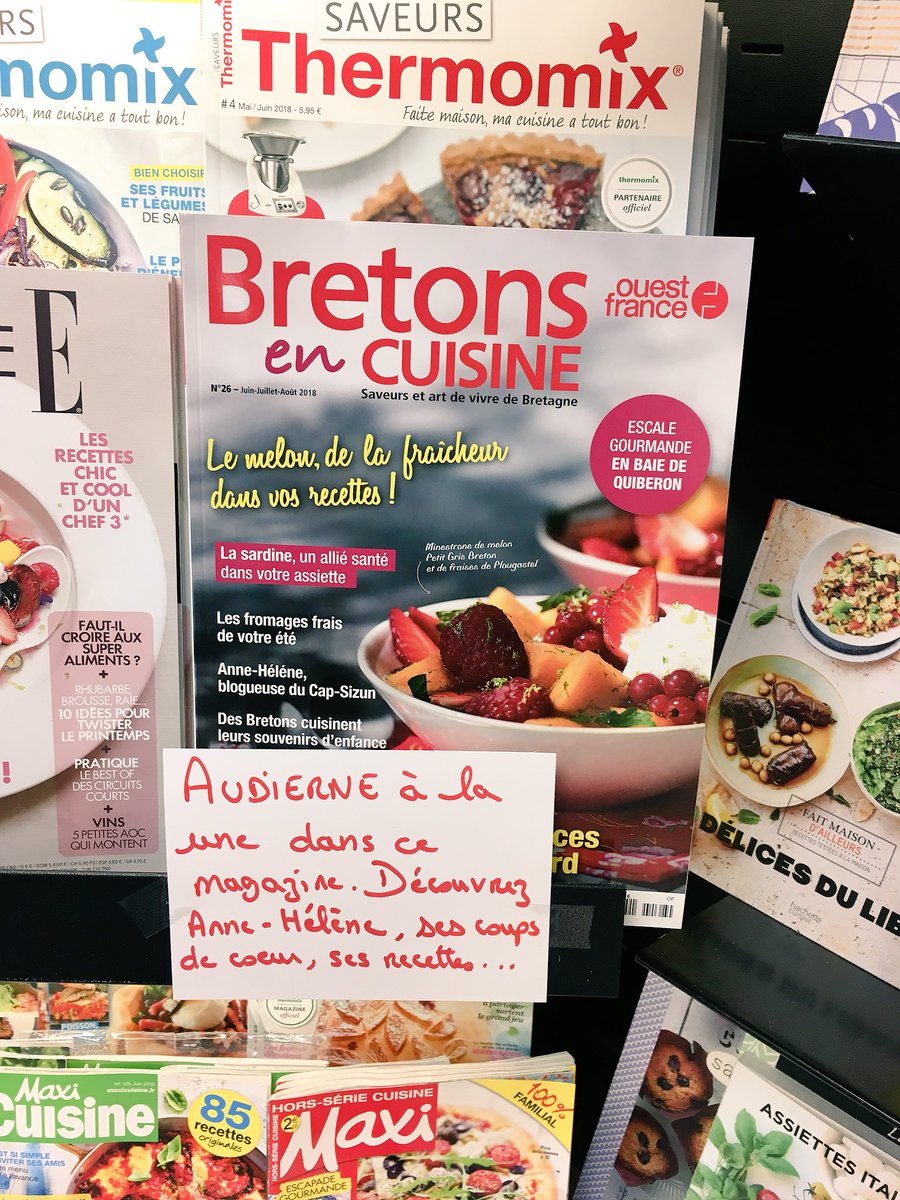 RS
SAVEURS
momix
SAVEURS
Thermomix
Thermomix®
#4 Mai / Juin 2018 - 5,95 €
Faite maison, ma cuisine a tout bon !
ma cuisine a tout bon !
BIEN CHOISIR
SES FRUITS
ET LÉGUMES
DE SA
LE P
D'ÉNE
thermomix
PARTENAIRE
officiel
E
LES
RECETTES
CHIC
ET COOL
D'UN
CHEF 3*
FAUT-IL
CROIRE AUX
SUPER
ALIMENTS ?
+
RHUBARBE,
BROUSSE, RAIE...
10 IDÉES POUR
TWISTER
LE PRINTEMPS
+
PRATIQUE
LE BEST OF
DES CIRCUITS
COURTS
+
VINS
5 PETITES AOC
QUI MONTENT
!
Bretons
en CUISINE
ouest
france
N°26 – Juin-Juillet-Août 2018
Saveurs et art de vivre de Bretagne
Le melon, de la fraîcheur
dans vos recettes !
ESCALE
GOURMANDE
EN BAIE DE
QUIBERON
La sardine, un allié santé
dans votre assiette
Minestrone de melon
Petit Gris Breton
et de fraises de Plougastel
Les fromages frais
de votre été
Anne-Héléne,
blogueuse du Cap-Sizun
Des Bretons cuisinent
leurs souvenirs d'enfance
ces
rd
OF
AUDIERNE à la
une dans ce
magazine. Découvrez
Anne-Hélène, ses coups
de coeur, ses recettes...
FAIT MAISON
D'AILLEURS
RECETTES TESTÉES À LA MAISON
DÉLICES DU LIB
hachette
CUISINE
POISSON,
thermomix
MAGAZINE
officiel
à partager
sortent
le grand jeu
Maxi
Cuisine
maxicuisine.fr
85
recettes
originales
HORS-SÉRIE CUISINE
HORS-SÉRIE CUISINE
2€
Maxi
100%
FAMILIAL
ESCAPADE
GOURMANDE
ASSIETTES ITA